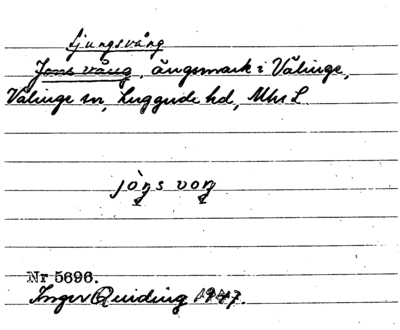 Ljungsvång
Jons vång, ängsmark i Välinge,
Välinge sn, Luggude hd, Mhs L.
jòŋs voŋ
Nr 5696.
Inger Quiding 1947.